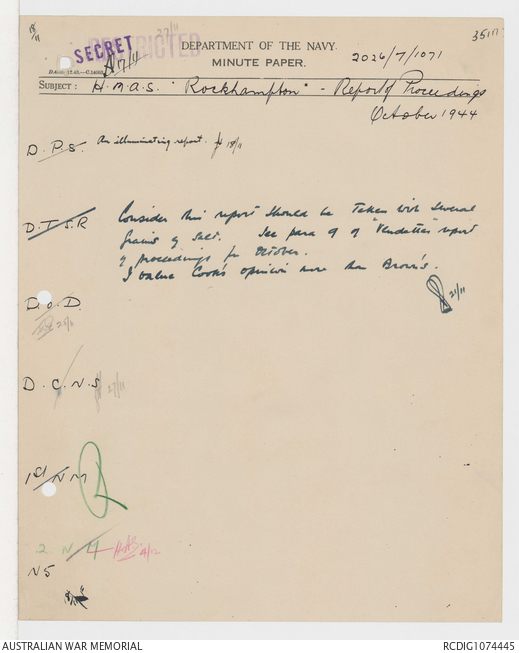 18/11
27/11
3517
RESTRICTED
SECRET
A 7/11
DEPARTMENT OF THE NAVY.
MINUTE PAPER.
2026/7/1071
SUBJECT: H.M.A.S. "Rockhampton" - Report of Proceedings
October 1944
D.P.S. An illuminating report. 18/11
D.T.S.R Consider this report should be taken with several
grains of salt. See para 9 of Vendetta's report
of proceedings for October.
I value Cook's opinion more than Brown's.
21/11
D.o.D.
D.C.N.S 27/11
1st N M
2 N M 4/12
N5
AUSTRALIAN WAR MEMORIAL
RCDIG1074445